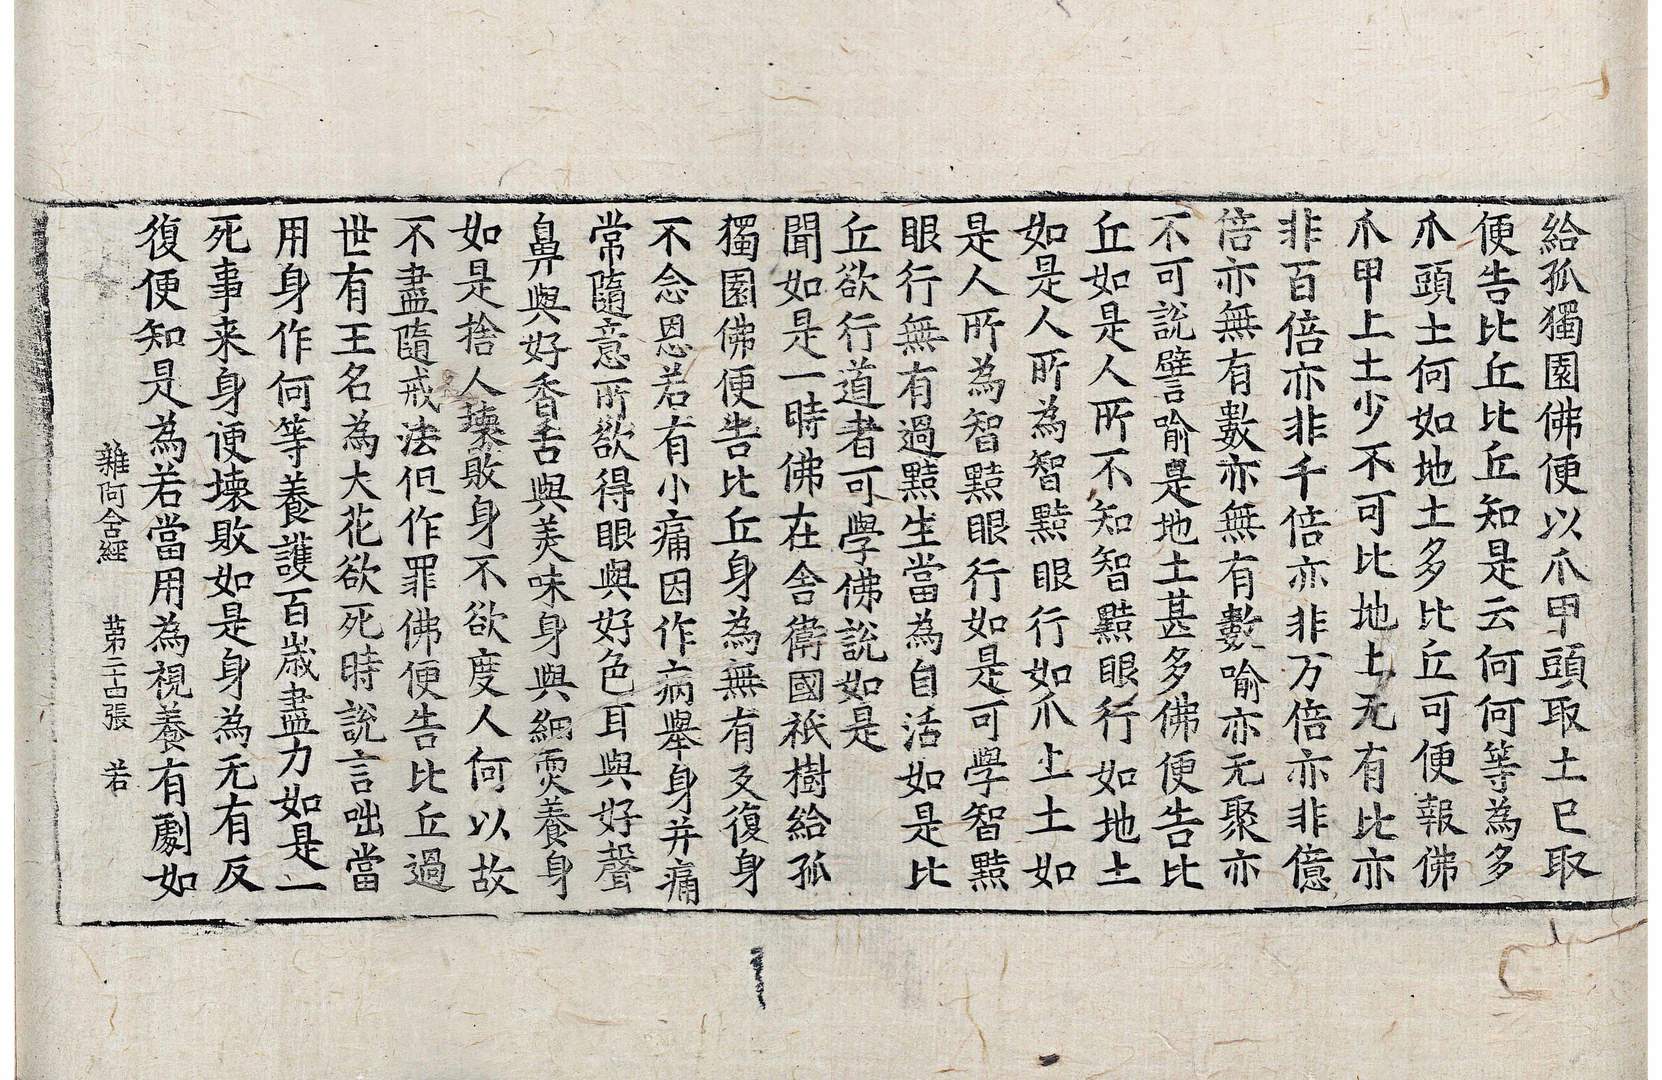 給孤獨園佛便以爪甲頭取土已取
便告比丘比丘知是云何何等為多
爪頭土何如地土多比丘可便報佛
爪甲上土少不可比地上无有比亦
非百倍亦非千倍亦非万倍亦非億
倍亦無有數亦無有數喻亦无聚亦
不可說譬喻是地土甚多佛便告比
丘如是人所不知智黠眼行如地土
如是人所為智黠眼行如爪上土如
是人所為智黠眼行如是可學智黠
眼行無有過黠生當為自活如是比
丘欲行道者可學佛說如是
聞如是一時佛在舍衛國祇樹給孤
獨園佛便告比丘身為無有反復身
不念恩若有小痛因作病舉身并痛
常隨意所欲得眼與好色耳與好聲
鼻與好香舌與美味身與細耎養身
如是捨人壞敗身不欲度人何以故
不盡隨戒法但作罪佛便告比丘過
世有王名為大花欲死時說言咄當
用身作何等養護百歲盡力如是一
死事来身便壞敗如是身為无有反
復便知是為若當用為視養有劇如
雜阿含經 苐 張 若